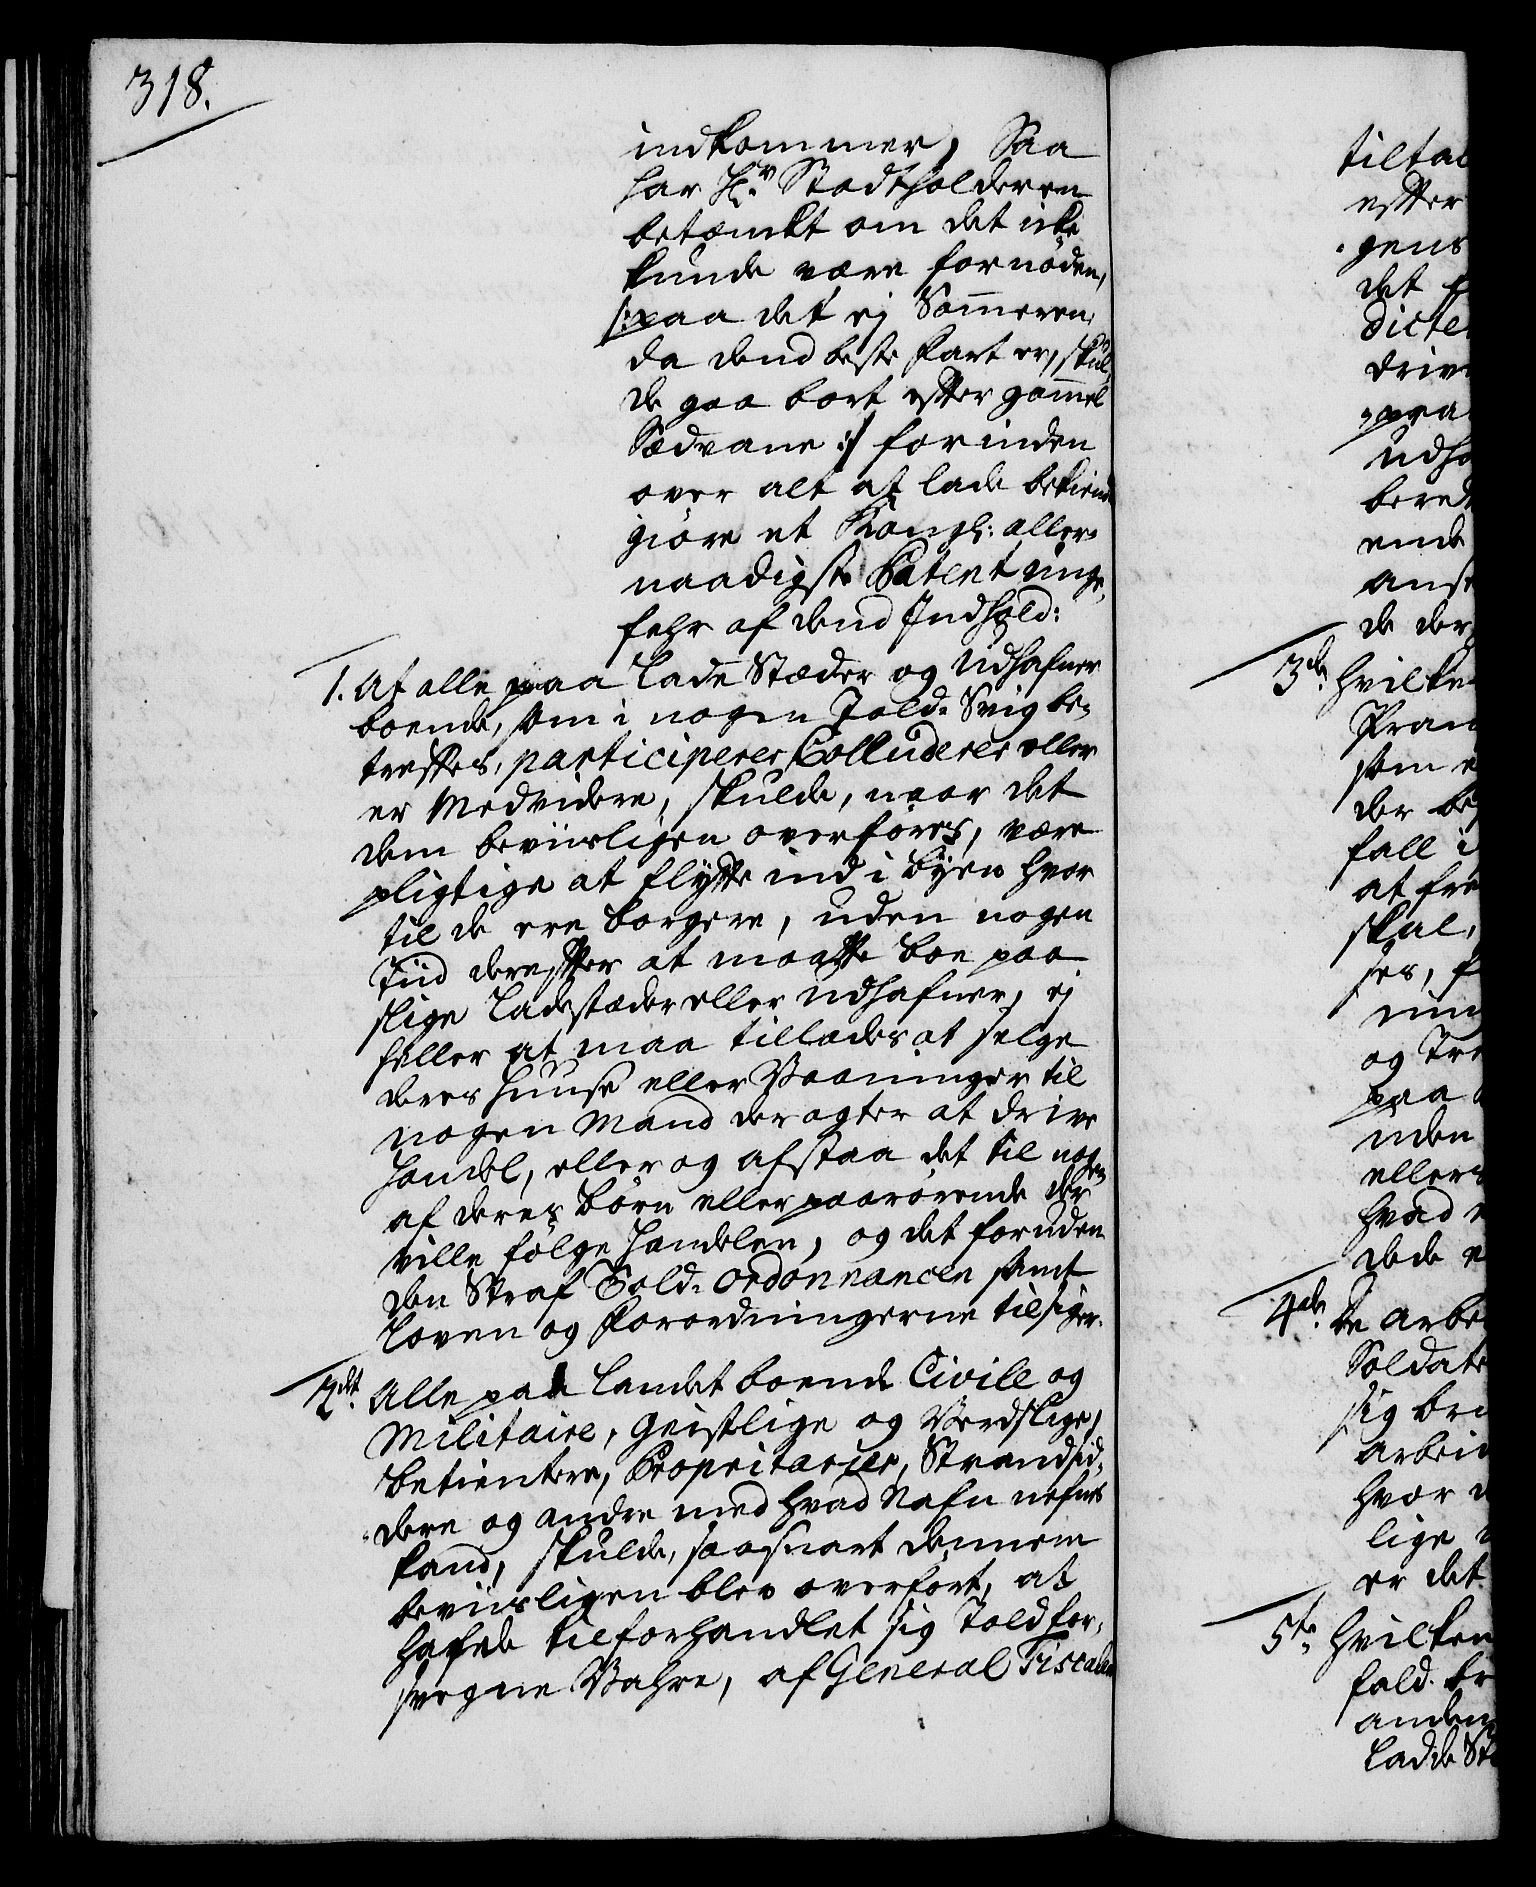 318.
indkommer, Saa
har Hr Stadtholderen
betænkt om det icke
kunde være fornöden,
/: paa det ej Som̄eren,
da dend beste fart er, skul„
de gaa bort efter gam̄el
Sædvane :/ forinden
over alt at lade bekiendt
giöre et Kongl: aller„
naadigste Patent unge„
fehr af dend Indhold:
1. At alle paa Lade Stæder og Udhafner
boende, som i nogen Told-Svig be„
treffes, participerer, Colluderer eller
er Medvidere, skulde, naar det
dem beviisligen overföres, være
pligtige at flytte ind i Byen hvor
til de ere borgere, uden nogen
Tiid derefter at maatte boe paa
slige Ladestæder eller Udhafner, ej
heller at maa tillades at selge
deres Huuse eller Vaaninger til
nogen Mand der agter at drive
Handel, eller og afstaa det til nogen
af deres börn eller paarörende der
ville fölge Handelen, og det foruden
den Straf Told-Ordonnancen samt
Loven og Forordningerne tilsiger.
2det Alle paa Landet boende Civile og
Militaire, Geistlige og Verdslige,
betientere, Proprietarier, Strandsid„
dere og andre med hvad Nafn nefnes
kand, skulde, saasnart dennem
beviisligen blev overfört, at
hafde tilforhandlet sig Told for„
svegne Vahre, af General Fiscalen
tiltal
efter
gens
det
dicte
driv
paa
udh
bered
ende
ans
de der
3de Hvilke
Pran
som e
der be
fall i
at fre
skal,
ses, f
ning
og Tre
paa
uden
ellers
hvad
dede
4de De Arbe
Soldate
sig bri
arbeid
hvor
lige
er det
5te Hvilken
fald br
anden
Ladde St